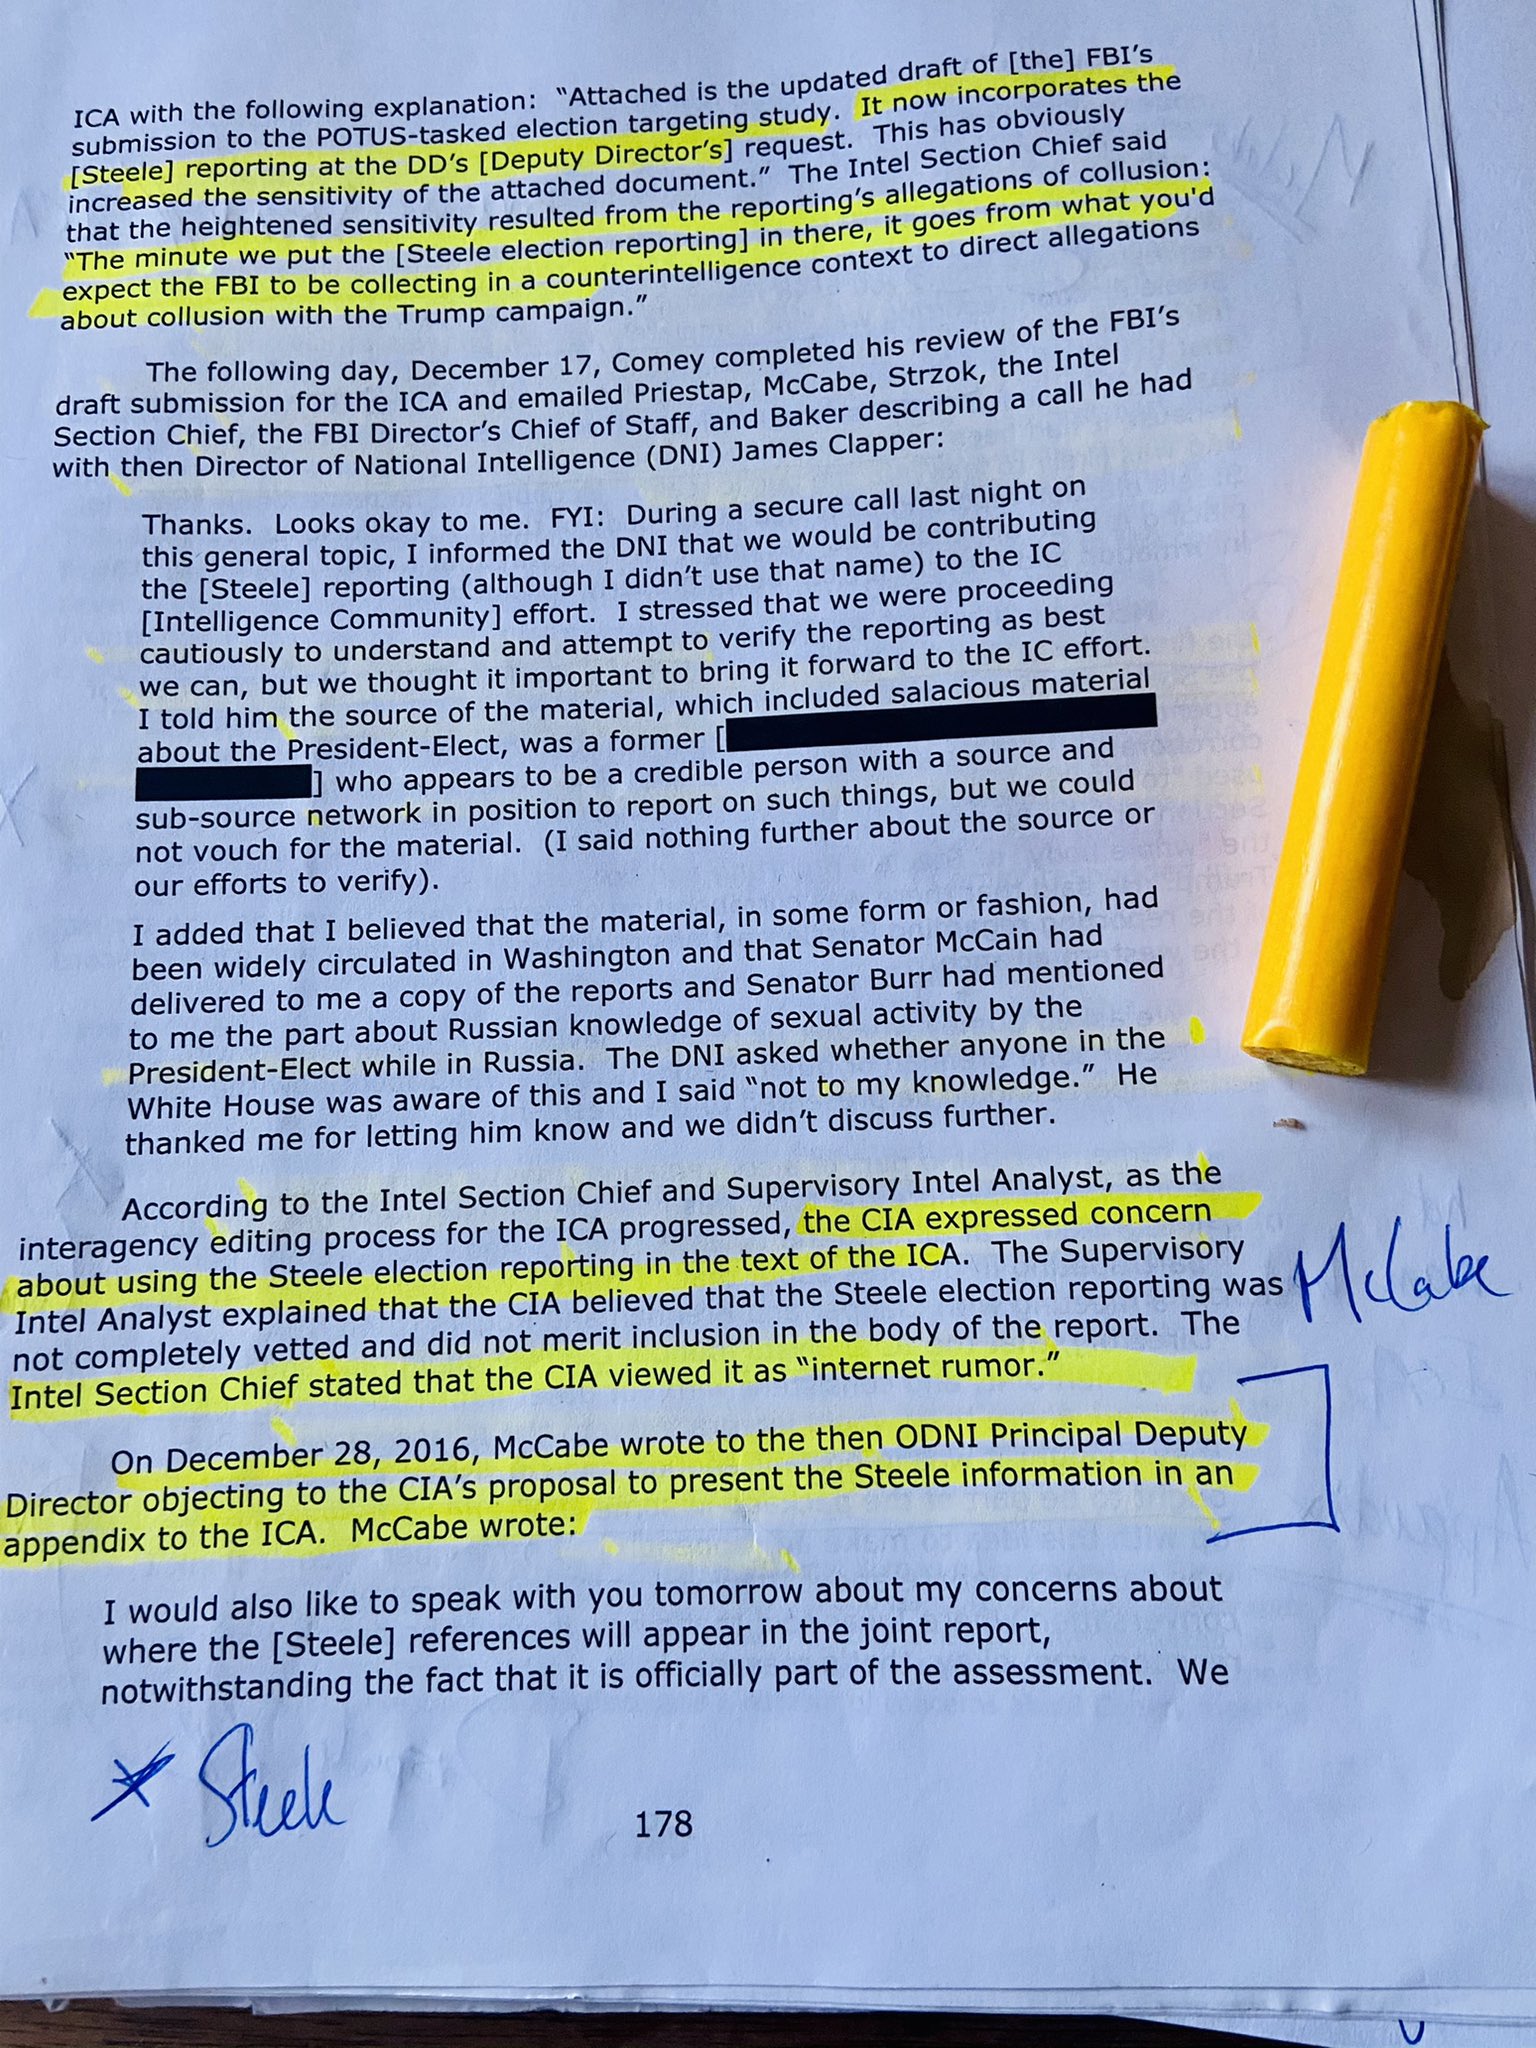 ICA with the following explanation: “Attached is the updated draft of [the] FBI’s
submission to the POTUS-tasked election targeting study. It now incorporates the
[Steele] reporting at the DD’s [Deputy Director’s] request. This has obviously
increased the sensitivity of the attached document.” The Intel Section Chief said
that the heightened sensitivity resulted from the reporting’s allegations of collusion:
“The minute we put the [Steele election reporting] in there, it goes from what you'd
expect the FBI to be collecting in a counterintelligence context to direct allegations
about collusion with the Trump campaign.”
The following day, December 17, Comey completed his review of the FBI’s
draft submission for the ICA and emailed Priestap, McCabe, Strzok, the Intel
Section Chief, the FBI Director’s Chief of Staff, and Baker describing a call he had
with then Director of National Intelligence (DNI) James Clapper:
Thanks. Looks okay to me. FYI: During a secure call last night on
this general topic, I informed the DNI that we would be contributing
the [Steele] reporting (although I didn’t use that name) to the IC
[Intelligence Community] effort. I stressed that we were proceeding
cautiously to understand and attempt to verify the reporting as best
we can, but we thought it important to bring it forward to the IC effort.
I told him the source of the material, which included salacious material
about the President-Elect, was a former [
] who appears to be a credible person with a source and
sub-source network in position to report on such things, but we could
not vouch for the material. (I said nothing further about the source or
our efforts to verify).
I added that I believed that the material, in some form or fashion, had
been widely circulated in Washington and that Senator McCain had
delivered to me a copy of the reports and Senator Burr had mentioned
to me the part about Russian knowledge of sexual activity by the
President-Elect while in Russia. The DNI asked whether anyone in the
White House was aware of this and I said “not to my knowledge.” He
thanked me for letting him know and we didn’t discuss further.
According to the Intel Section Chief and Supervisory Intel Analyst, as the
interagency editing process for the ICA progressed, the CIA expressed concern
about using the Steele election reporting in the text of the ICA. The Supervisory
Intel Analyst explained that the CIA believed that the Steele election reporting was
not completely vetted and did not merit inclusion in the body of the report. The
Intel Section Chief stated that the CIA viewed it as “internet rumor.”
McCabe
On December 28, 2016, McCabe wrote to the then ODNI Principal Deputy
Director objecting to the CIA’s proposal to present the Steele information in an
appendix to the ICA. McCabe wrote:
I would also like to speak with you tomorrow about my concerns about
where the [Steele] references will appear in the joint report,
notwithstanding the fact that it is officially part of the assessment. We
Steele
178